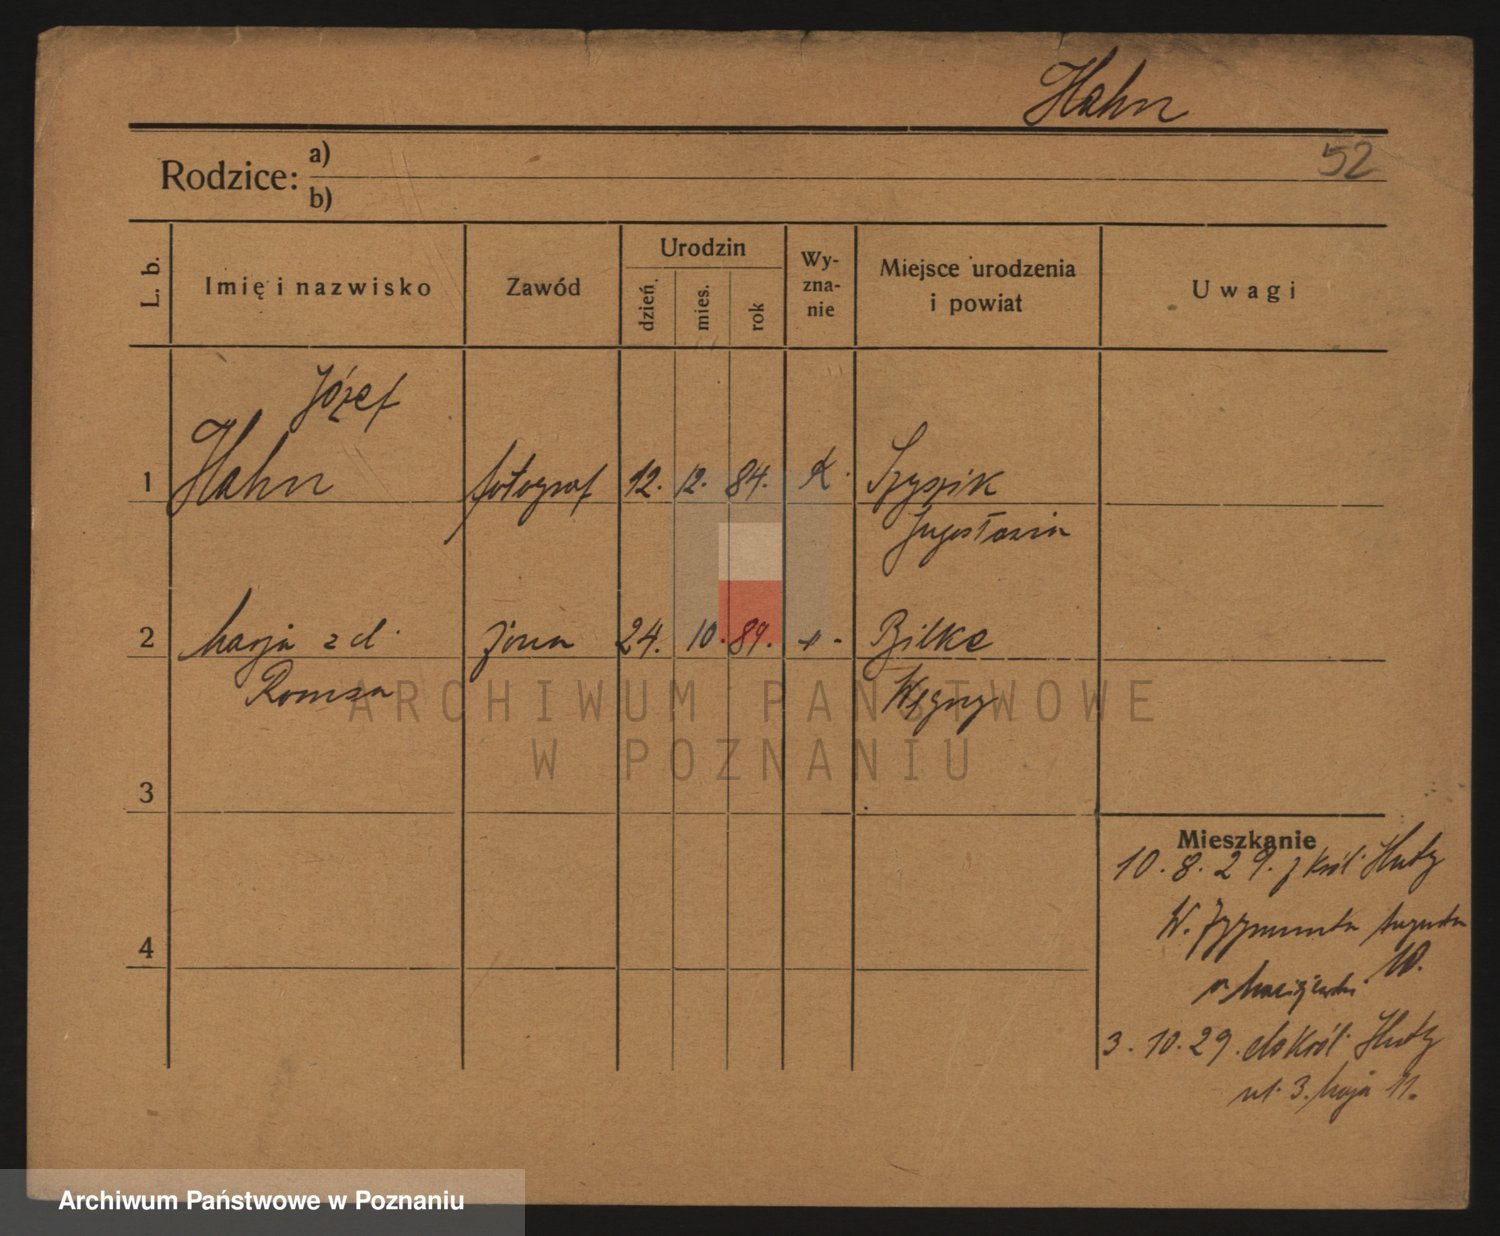 Hahn
52
Rodzice: a)
b)
L. b.
Imię i nazwisko
Zawód
Urodzin
dzień
mies.
rok
Wy-
zna-
nie
Miejsce urodzenia
i powiat
Uwagi
Józef
1 Hahn fotograf 12. 12. 84. K.
Jugosławia
2 Marja z d. żona 24. 10. 89. -"-
Romsza
Węgry
ARCHIWUM PAŃSTWOWE
W POZNANIU
3
Mieszkanie
10. 8. 29. z Król. Huty
W. Zygmunta Augusta
10.
4
3. 10. 29. do Król. Huty
ul. 3. Maja 11.
Archiwum Państwowe w Poznaniu